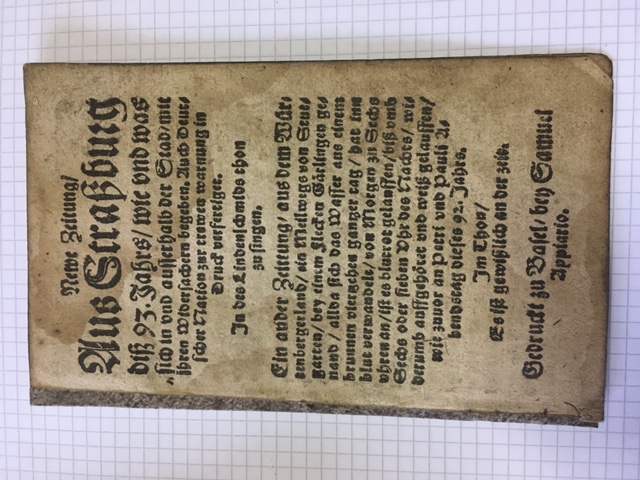 Newe Zeitung/
Aus Straßburg
diß 93. Jahrs/ wie vnd was
sich in vnd ausserhalb der Stad/ mit
ihren Widersachern begeben. Auch Deut-
scher Nation zur trewen warnung in
Druck verfertiget.
In des Lindenschmids thon
zu singen.
Ein ander Zeittung/ aus dem Wür-
tenbergerland/ ein Meilwegs von Stut-
garten/ bey einem Flecken Gärlingen ge-
nand/ allda sich das Wasser aus einem
brunnen vierzehen gantzer tag/ hat inn
blut verwandelt/ von Morgen zu Sechs
vhren an/ ist es blutrot gelauffen/ biß vmb
Sechs oder sieben Vhr des Nachts/ wi-
derumb auffgehört vnd weiß gelauffen/
wie zuuor an Petri vnd Pauli A-
bendstag dieses 92. Jahrs.
Im Thon/
Es ist gewißlich an der zeit.
Gedruckt zu Basel/ bey Samuel
Appiario.